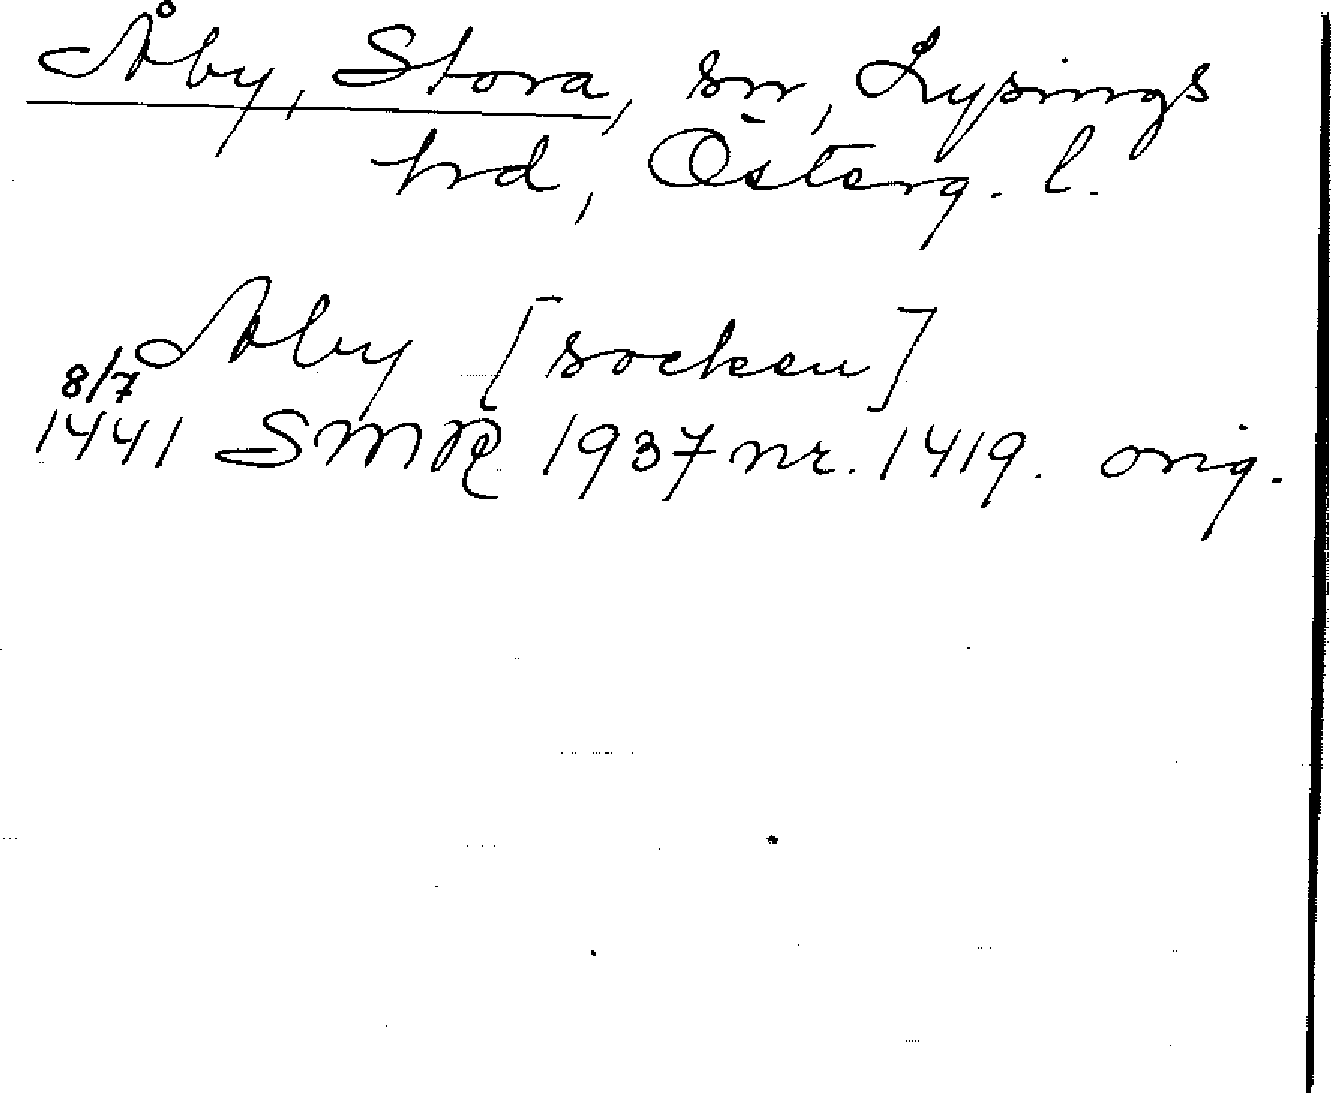 Åby, Stora, sn, Lysings
hd, Österg. l.
Aby [socken]
8/7
1441 SMR 1937 nr. 1419. orig.